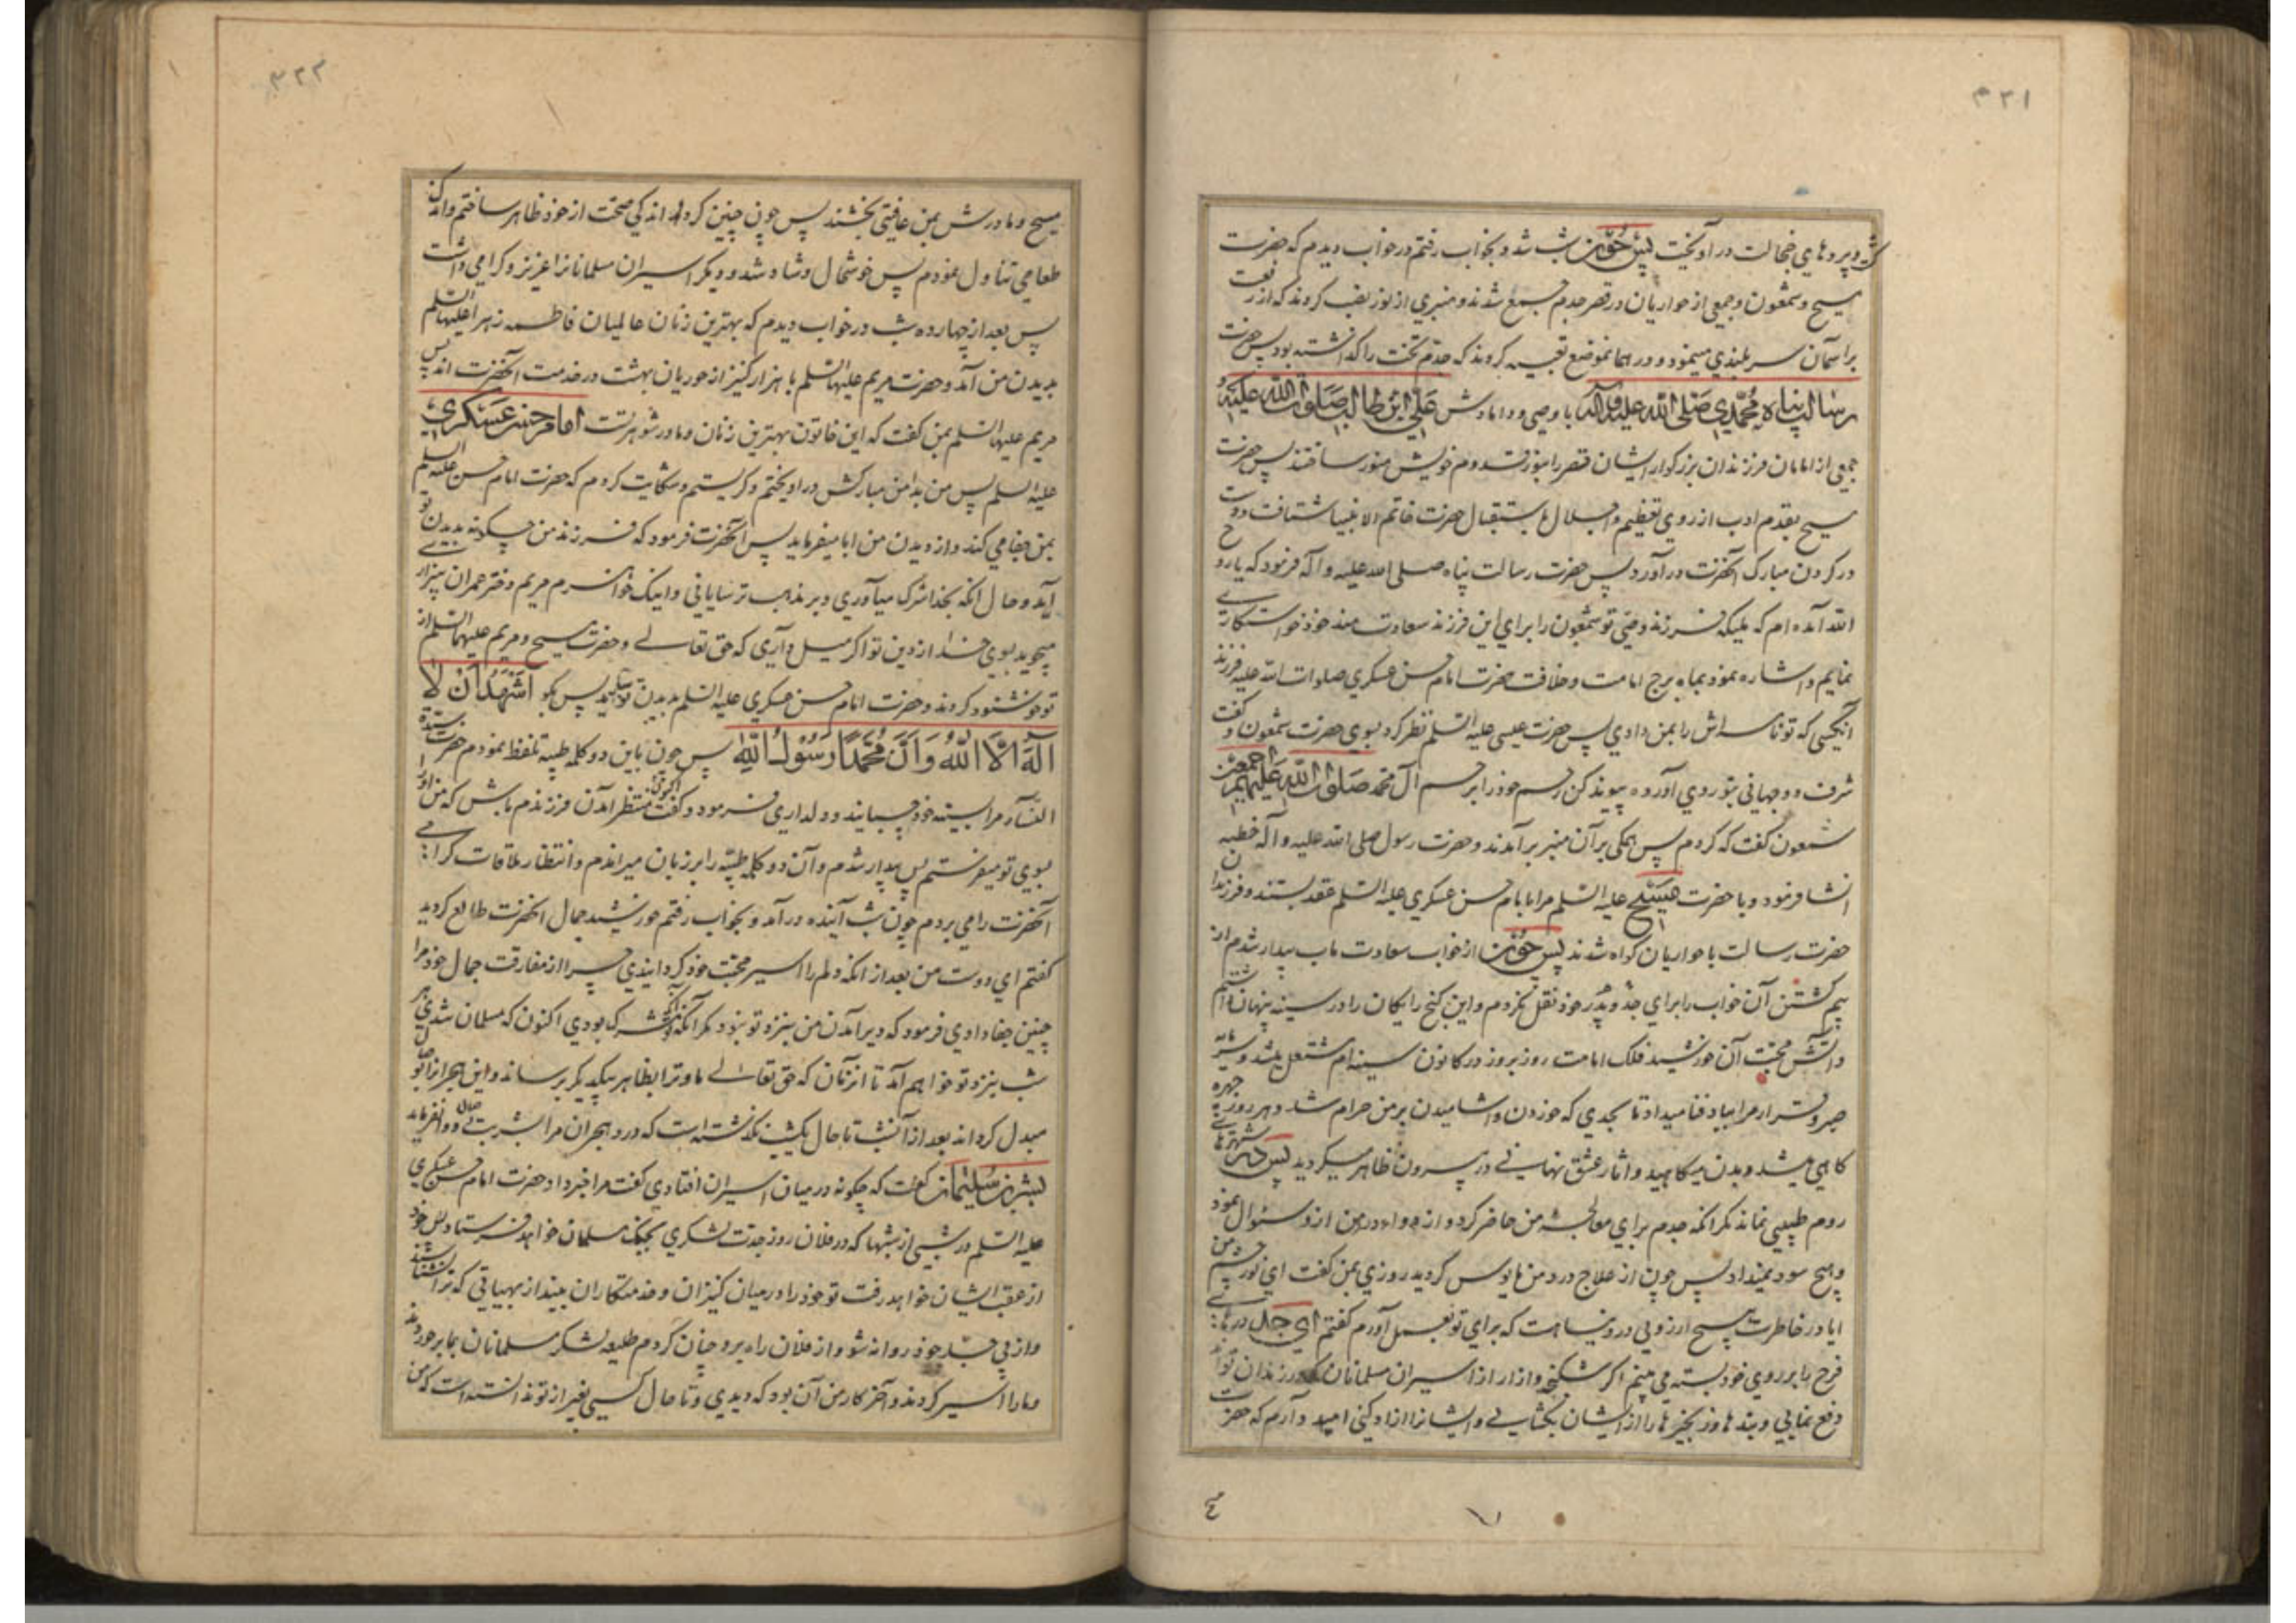 ۳۲۱
و پرده های خجالت در آویخت پس چون شب شد و بخواب رفتم در خواب دیدم که حضرت
مسیح و شمعون و جمعی از حواریان در قصر جدم جمع شدند و منبری از نور نصب کردند که از رفعت
بر آسمان سربلندی مینمود و در همان موضع تعبیه کردند که جدم تخت را گذاشته بود پس حضرت
رسالت پناه محمدی صلی الله علیه و آله با وصی و دامادش علی ابن طالب صلوات الله علیه و
جمعی از امامان فرزندان بزرکوار ایشان قصر را بنور قدوم خویش منور ساختند پس حضرت
مسیح بقدم ادب از روی تعظیم و اجلال باستقبال حضرت خاتم الانبیا شتافت و دست
در کردن مبارک آنحضرت در آورد پس حضرت رسالت پناه صلی الله علیه و آله فرمود که یا روح
الله آمده ام که ملیکه فرزند وصی تو شمعون را برای این فرزند سعادتمند خود خواستکاری
نمایم و اشاره نمود بماه برج امامت و خلافت حضرت امام حسن عسکری صلوات الله علیه فرزند
آنکسی که تو نامه اش را بمن دادی پس حضرت عیسی علیه السلم نظر کرد بسوی حضرت شمعون و کفت
شرف دو جهانی بتو روی آورده پیوند کن رحم خود را برحم آل محمد صلوات الله علیهم اجمعین
شمعون کفت که کردم پس همکی بر آن منبر بر آمدند و حضرت رسول صلی الله علیه و آله خطبه
انشا فرمود و با حضرت مسیح علیه السلم مرا بامام حسن عسکری علیه السلم عقد بستند و فرزندان
حضرت رسالت با حواریان کواه شدند پس چون از خواب سعادت ماب بیدار شدم از
بیم کشتن آن خواب را برای جد و پدر خود نقل نکردم و این کنج رایکان را در سینه پنهان داشتم
و آتش محبت آن خورشید فلک امامت روز بروز در کانون سینه ام مشتعل میشد و سرمایه
صبر و قرار مرا بباد فنا میداد تا بحدی که خوردن و آشامیدن بر من حرام شد و هر روز چهره
کاهی میشد و بدن میکاهید و آثار عشق نهانی در بیرون ظاهر میکردید پس در شهرهای
روم طبیبی نماند مکر آنکه جدم برای معالجه من حاضر کرد و از دوا درد من از و سئوال نمود
و هیچ سود نمیداد پس چون از علاج درد من مایوس کردید روزی بمن کفت ای نور چشم من
آیا در خاطرت هیچ آرزویی در دنیا هست که برای تو بعمل آورم کفتم ای جد درهای
فرح را بر روی خود بسته می بینم اکر شکنجه و آزار از اسیران مسلمانان که در زندان تواند
دفع نمایی و بندها و زنجیرها را از ایشان بکشایی و ایشانرا آزاد کنی امید دارم که حضرت
۳۲۲
مسیح و مادرش بمن عافیتی بخشند پس چون چنین کرد اندکی صحت از خود ظاهر ساختم و اندک
طعامی تناول نمودم پس خوشحال و شاد شد و دیکر اسیران مسلمانانرا عزیز و کرامی داشت
پس بعد از چهارده شب در خواب دیدم که بهترین زنان عالمیان فاطمه زهرا علیها السلم
بدیدن من آمد و حضرت مریم علیها السلم با هزار کنیز از حوریان بهشت در خدمت آنحضرت اند پس
مریم علیها السلم بمن کفت که این خاتون بهترین زنان و مادر شوهر تست امام حسن عسکری
علیه السلم پس من بدامن مبارکش در آویختم و کریستم و شکایت کردم که حضرت امام حسن علیه السلم
بمن جفا می کند و از دیدن من ابا میفرماید پس آنحضرت فرمود که فرزند من چکونه بدیدن تو
آید و حال آنکه بخدا شرک میآوری و بر مذهب ترسایانی و اینک خواهرم مریم دختر عمران بیزاری
میجوید بسوی خدا از دین تو اکر میل داری که حق تعالی و حضرت مسیح و مریم علیهما السلم از
تو خوشنود کردند و حضرت امام حسن عسکری علیه السلم بدیدن تو بیاید پس بکو اشهد ان لا
اله الا الله و ان محمدا رسول الله پس چون باین دو کلمه طیبه تلفظ نمودم حضرت سیدة
النساء مرا بسینه خود چسبانید و دلداری فرمود و کفت اکنون منتظر آمدن فرزندم باش که من او را
بسوی تو میفرستم پس بیدار شدم و آن دو کلمه طیبه را بر زبان میراندم و انتظار ملاقات کرامی
آنحضرت را می بردم چون شب آینده در آمد و بخواب رفتم خورشید جمال آنحضرت طالع کردید
کفتم ای دوست من بعد از آنکه دلم را اسیر محبت خود کردانیدی چرا از مفارقت جمال خود مرا
چنین جفا دادی فرمود که دیر آمدن من بنزد تو نبود مکر آنکه مشرک بودی اکنون که مسلمان شدی هر
شب بنزد تو خواهم آمد تا آنزمان که حق تعالی ما و ترا بظاهر بیکدیکر برساند و این هجر را بوصال
مبدل کرداند بعد از آنشب تا حال یکشب نکذشته است که درد هجران مرا بشربت وصال دوا نفرماید
بشر بن سلیمان کفت که چکونه در میان اسیران افتادی کفت مرا خبر داد حضرت امام حسن عسکری
علیه السلم در شبی از شبها که در فلان روز جدت لشکری بجنک مسلمانان خواهد فرستاد پس خود
از عقب ایشان خواهد رفت تو خود را در میان کنیزان و خدمتکاران بینداز بهیئتی که ترا نشناسند
و از پی جد خود روانه شو و از فلان راه برو چنان کردم طلیعه لشکر مسلمانان بما برخوردند
و ما را اسیر کردند و آخر کار من آن بود که دیدی و تا حال کسی بغیر از تو ندانسته است که من